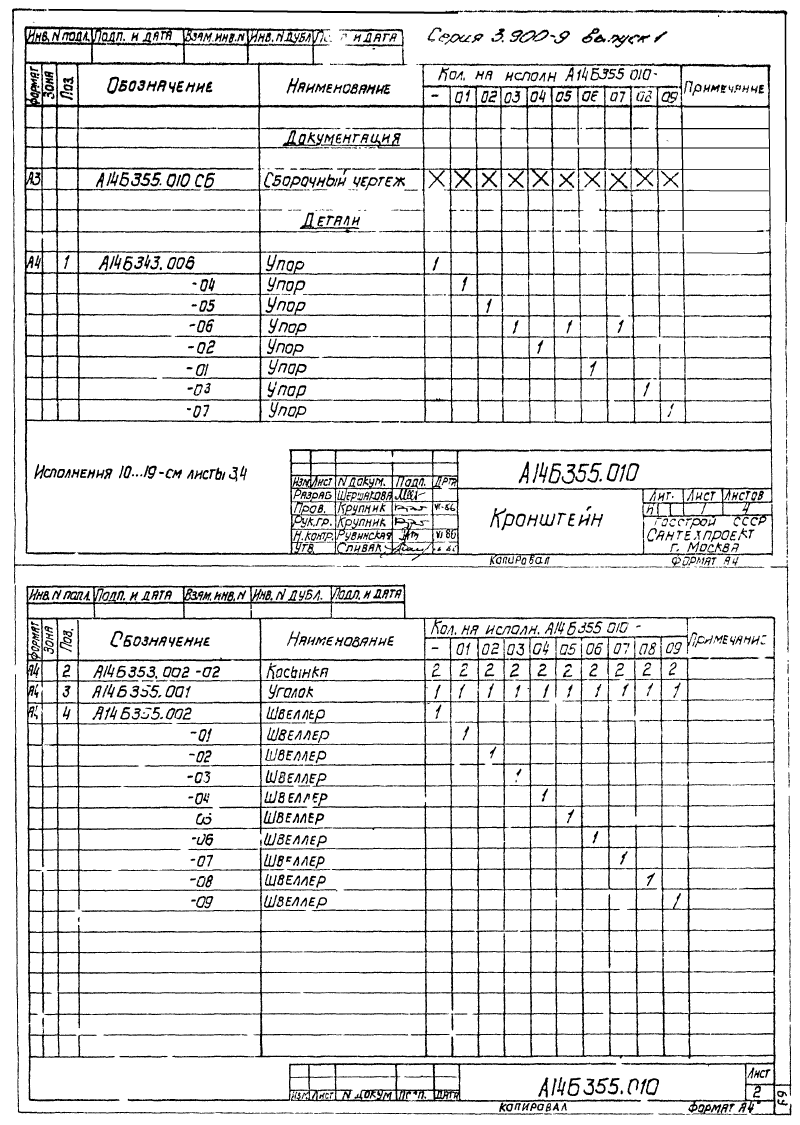 Инв. N подл. Подп. и дата Взам. инв. N Инв. N дубл. Подп. и дата
Серия 3.900-9 выпуск 1
Формат Зона Поз. Обозначение Наименование Кол. на исполн А14Б355 010- Примечание
- 01 02 03 04 05 06 07 08 09
Документация
А3 А14Б355.010 СБ Сборочный чертеж X X X X X X X X X X
Детали
А4 1 А14Б343.006 Упор 1
-04 Упор 1
-05 Упор 1
-06 Упор 1 1 1
-02 Упор 1
-01 Упор 1
-03 Упор 1
-07 Упор 1
Исполнения 10...19 - см листы 3,4
Изм Лист N докум. Подп. Дата
Разраб Шершакова
Пров. Крупник VI-86
Рук.гр. Крупник
Н.контр. Рувинская VI 86
Утв. Спивак
А14Б355.010
Кронштейн
Лит. Лист Листов
И 1 4
Госстрой СССР
Сантехпроект
г. Москва
Копировал Формат А4
Инв. N подл. Подп. и дата Взам. инв. N Инв. N дубл. Подп. и дата
Формат Зона Поз. Обозначение Наименование Кол. на исполн. А14Б355 010 - Примечание
- 01 02 03 04 05 06 07 08 09
А4 2 А14Б353.002 -02 Косынка 2 2 2 2 2 2 2 2 2 2
А4 3 А14Б355.001 Уголок 1 1 1 1 1 1 1 1 1 1
А4 4 А14Б355.002 Швеллер 1
-01 Швеллер 1
-02 Швеллер 1
-03 Швеллер 1
-04 Швеллер 1
05 Швеллер 1
-06 Швеллер 1
-07 Швеллер 1
-08 Швеллер 1
-09 Швеллер 1
Изм Лист N докум Подп. Дата
А14Б355.010
Лист
2
Копировал Формат А4